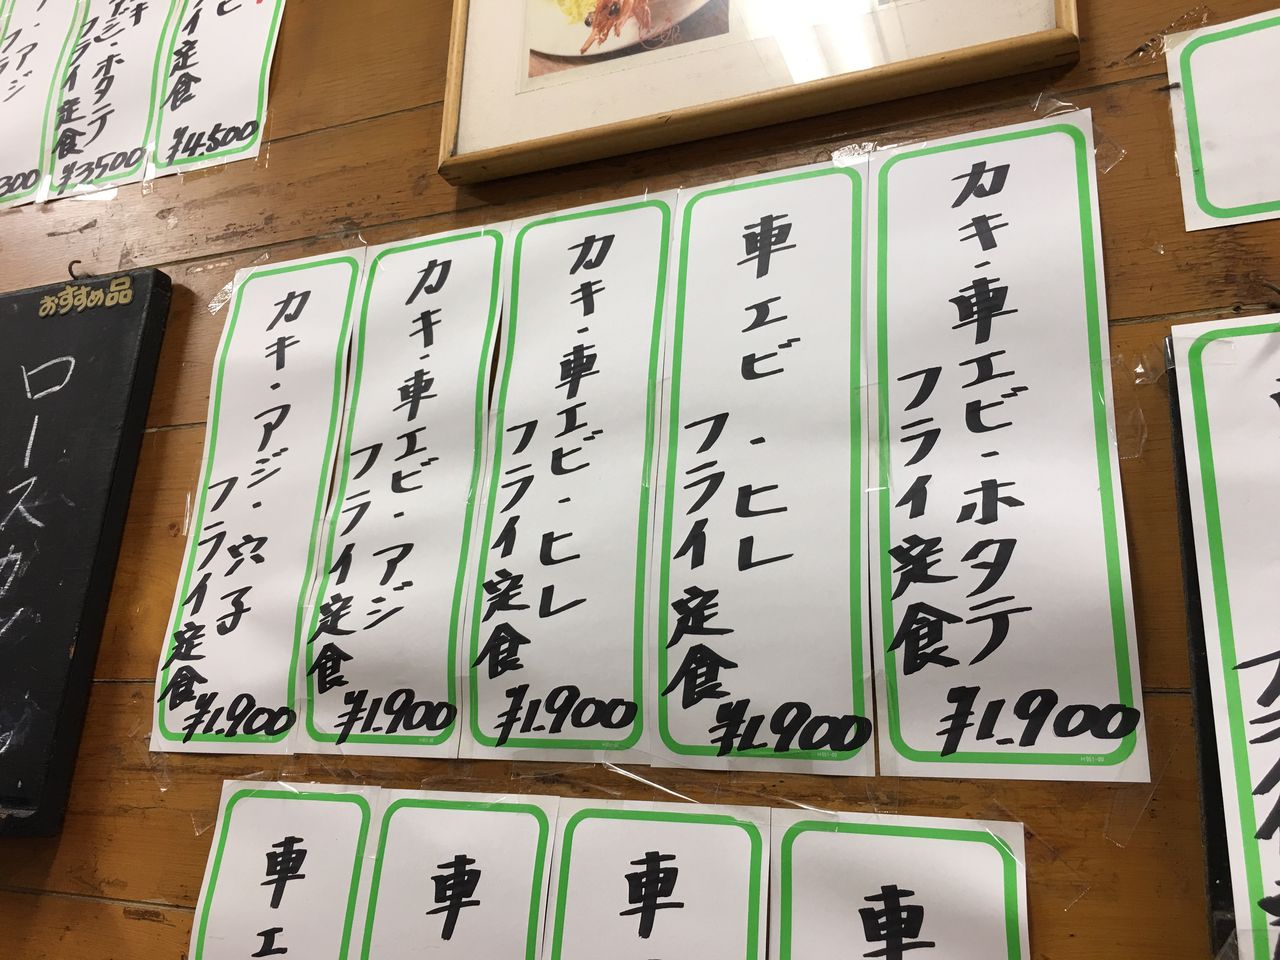 カキ・車エビ・ホタテ
フライ定食
¥1,900
車エビ・ヒレ
フライ定食
¥1,900
カキ・車エビ・ヒレ
フライ定食
¥1,900
カキ・車エビ・アジ
フライ定食
¥1,900
カキ・アジ・穴子
フライ定食
¥1,900
定食
¥4,500
ホタテ
フライ定食
¥3,500
おすすめ品
ロースカツ
車
車
車
車エ